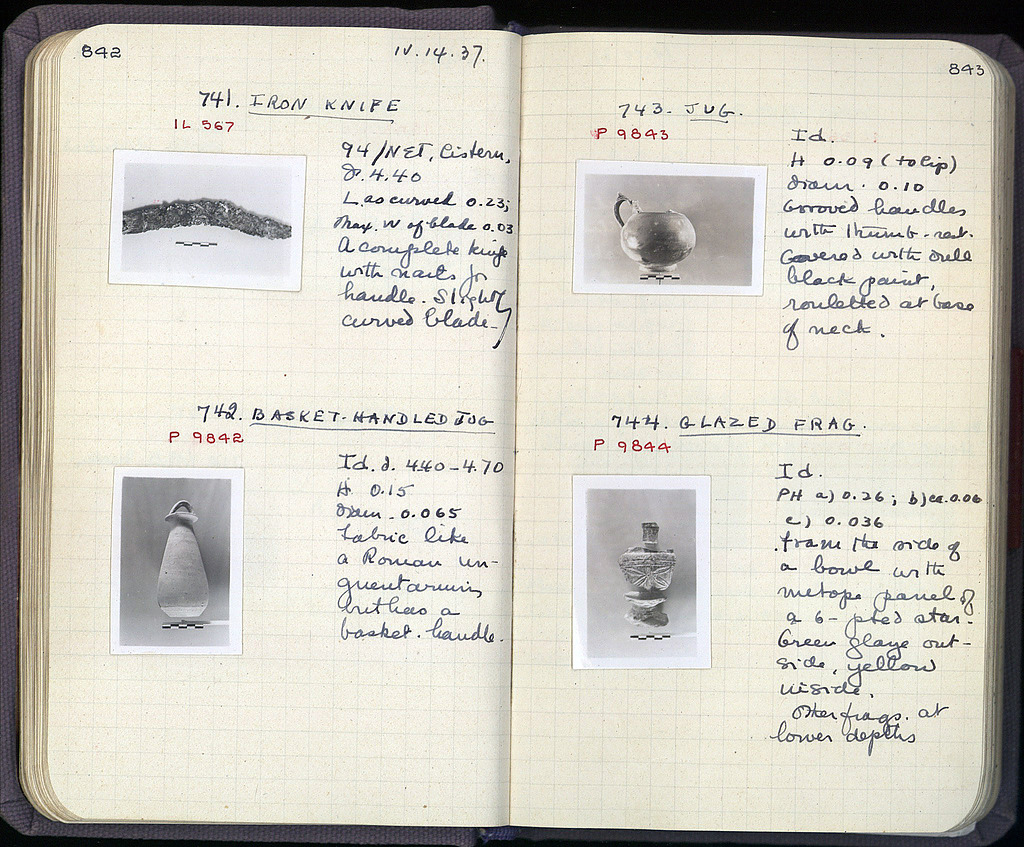 842
IV.14.37.
741. IRON KNIFE
IL 567
94/NET, Cistern,
d. 4.40
L. as curved 0.23;
Max. W of blade 0.03
A complete knife
with nails for
handle. Slightly
curved blade
742. BASKET-HANDLED JUG
P 9842
Id. d. 440-4.70
H 0.15
Diam. 0.065
Fabric like
a Roman un-
guentarium,
but has a
basket-handle.
843
743. JUG.
P 9843
Id.
H 0.09 (to lip)
Diam. 0.10
Grooved handles
with thumb-rest.
Covered with dull
black paint,
rouletted at base
of neck.
744. GLAZED FRAG.
P 9844
Id.
PH a) 0.26; b) ca. 0.06
c) 0.036
from the side of
a bowl with
metope panel of
a 6-pted star.
Green glaze out-
side, yellow
inside.
Other frags. at
lower depths